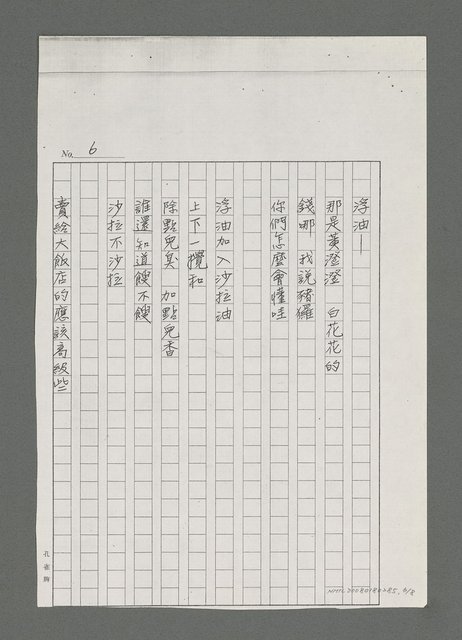 No. 6
浮油—
那是黃澄澄 白花花的
錢哪 我說豬儸
你們怎麼會懂哇
浮油加入沙拉油
上下一攪和
除點兒臭 加點兒香
誰還知道餿不餿
沙拉不沙拉
賣給大飯店的應該高級些
孔雀牌
NMTL20080180285, 6/8